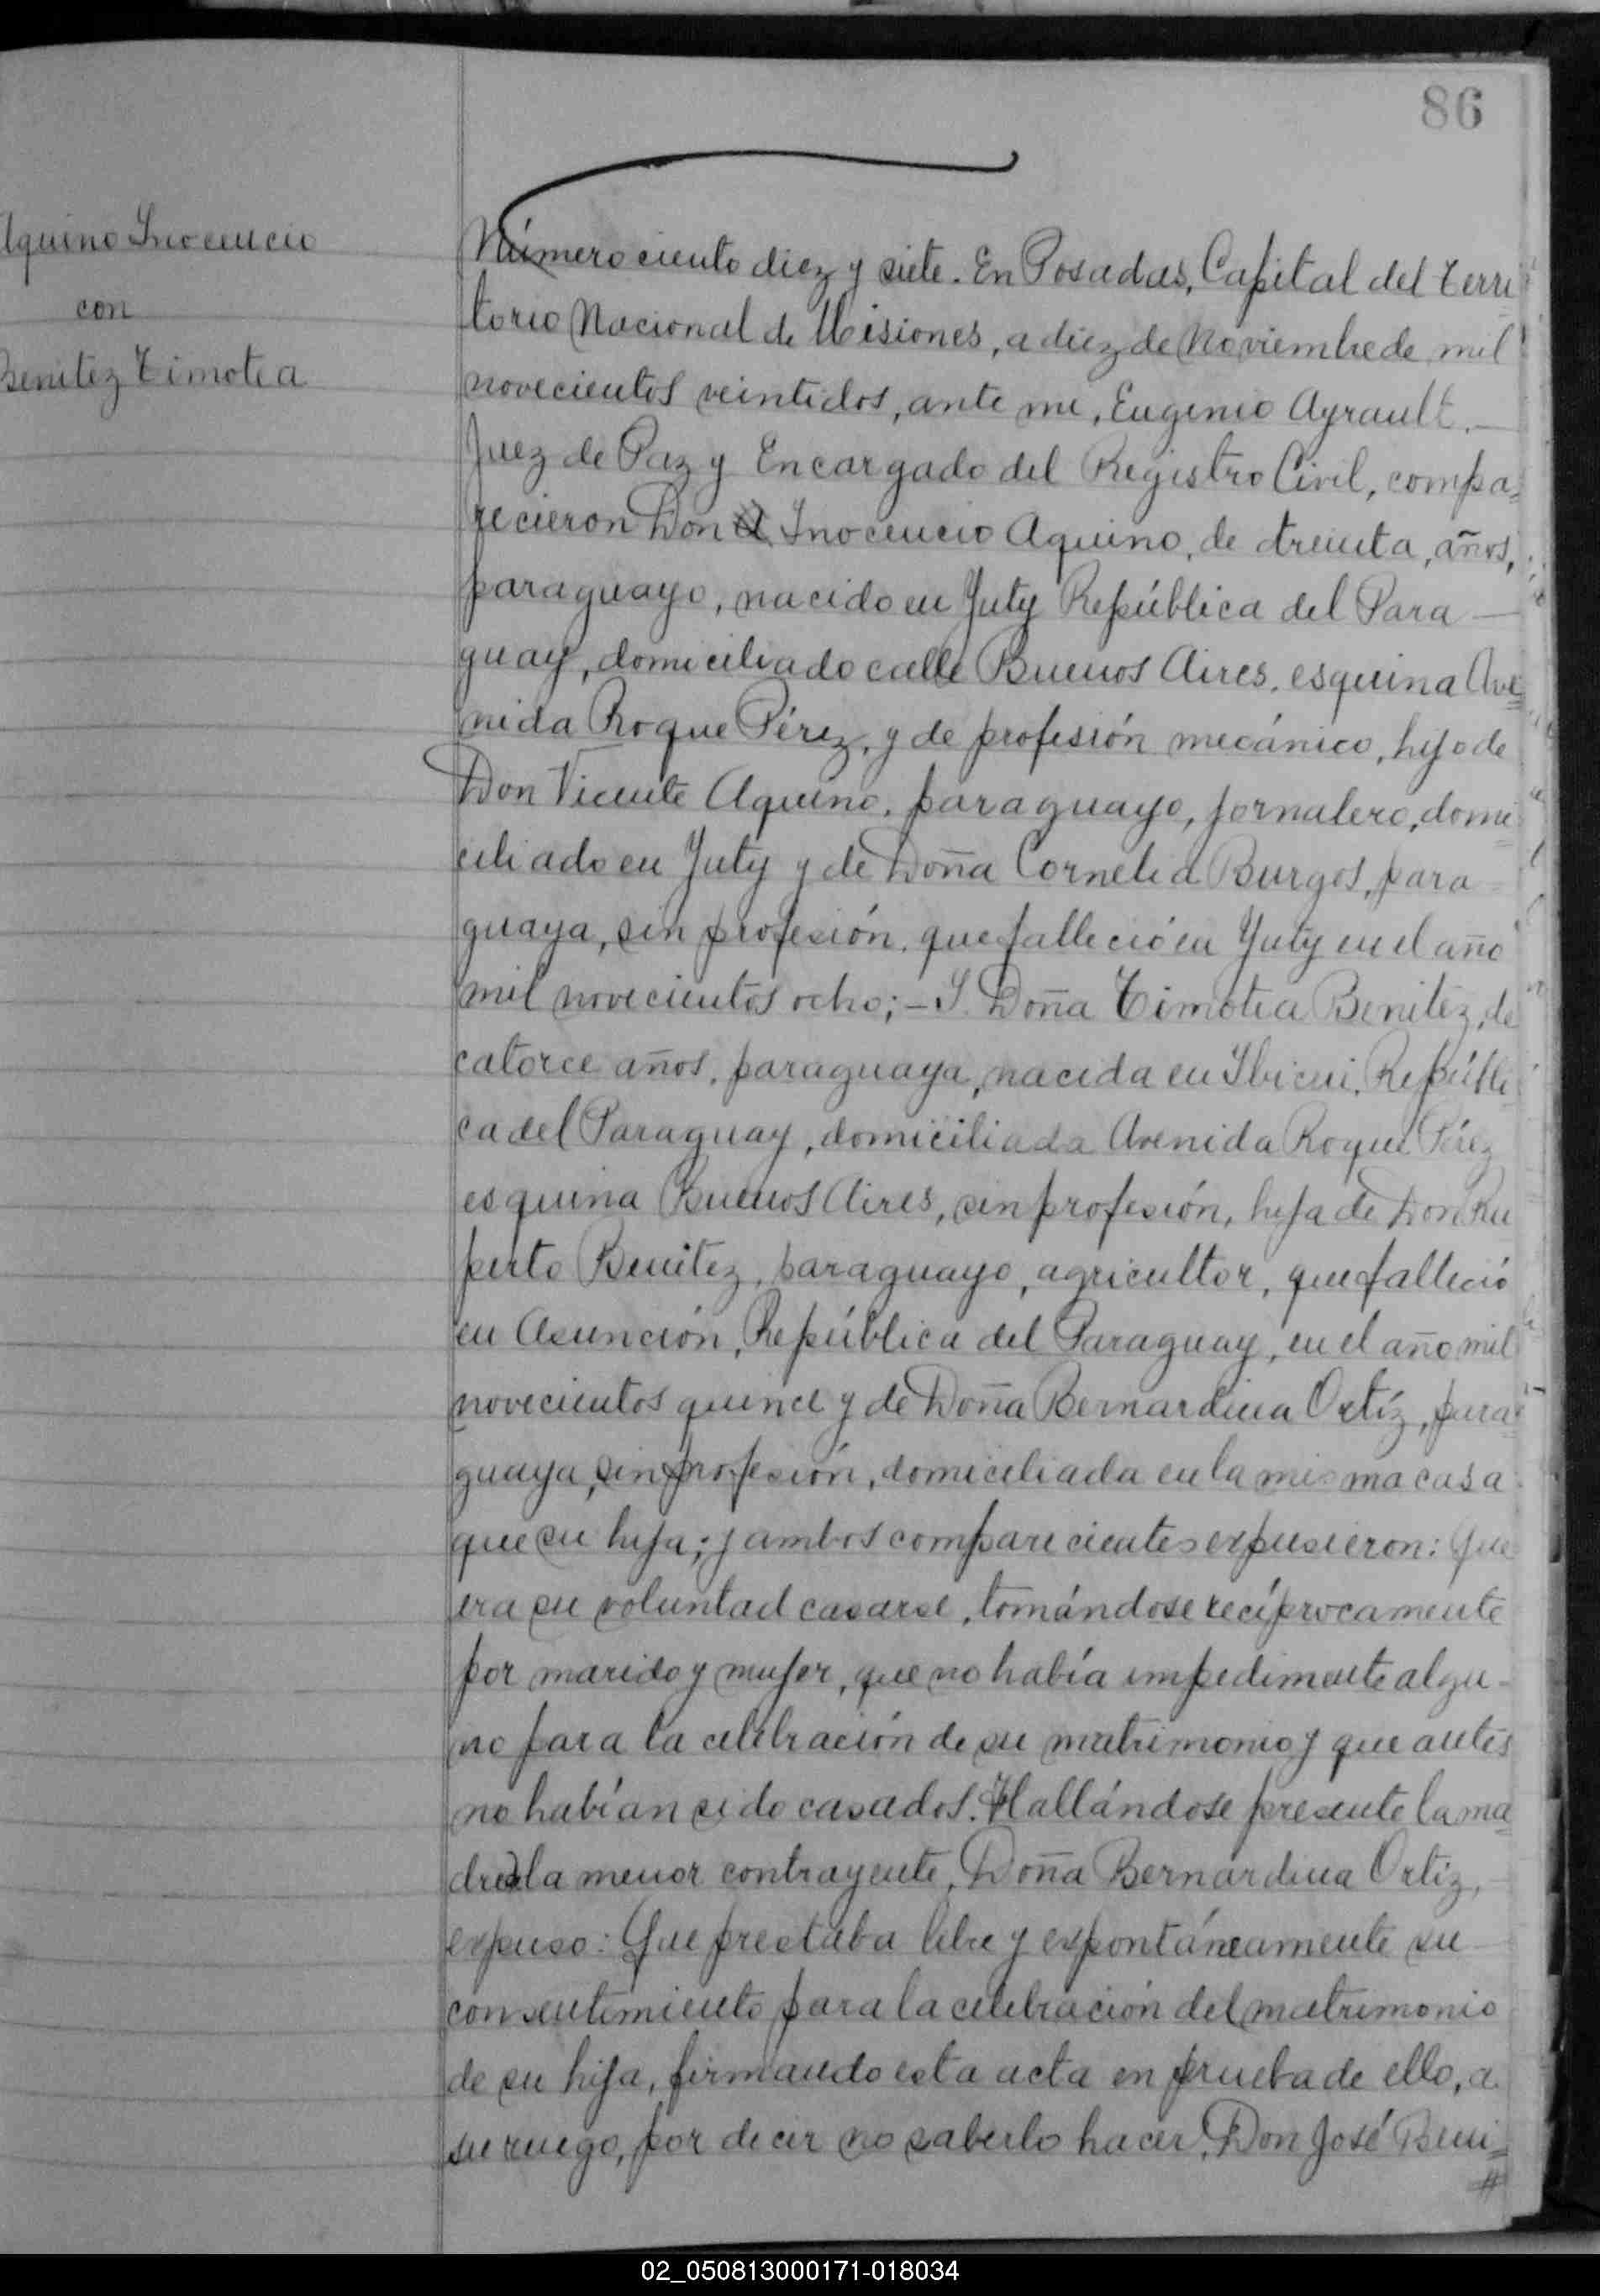 86
Aquino Inocencio
con
Benitez Timotea
Número ciento diez y siete. En Posadas, Capital del Terri
torio Nacional de Misiones, a diez de Noviembre de mil
novecientos veintidos, ante mi, Eugenio Ayrault.—
Juez de Paz y Encargado del Registro Civil, compa=
recieron Don Inocencio Aquino, de treinta, años,
paraguayo, nacido en Yuty República del Para—
guay, domiciliado calle Buenos Aires, esquina Ave=
nida Roque Pérez, y de profesión mecánico, hijo de
Don Vicente Aquino, paraguayo, jornalero, domi=
ciliado en Yuty y de Doña Cornelia Burgos, para=
guaya, sin profesión, que falleció en Yuty en el año
mil novecientos ocho;— Y Doña Timotea Benitez, de
catorce años, paraguaya, nacida en Ibicui, Repúbli
ca del Paraguay, domiciliada Avenida Roque Pérez
esquina Buenos Aires, sin profesión, hija de Don Ru
perto Benitez, paraguayo, agricultor, que falleció
en Asunción, República del Paraguay, en el año mil
novecientos quince y de Doña Bernardina Ortíz, para=
guaya, sin profesión, domiciliada en la misma casa
que su hija; y ambos comparecientes expusieron: Que
era su voluntad casarse, tomándose recíprocamente
por marido y mujer, que no había impedimento algu-
no para la celebración de su matrimonio y que antes
no habían sido casados. Hallándose presente la ma=
dre de la menor contrayente, Doña Bernardina Ortiz,
expuso: Que prestaba libre y espontáneamente su
consentimiento para la celebración del matrimonio
de su hija, firmando esta acta en prueba de ello, a
su ruego, por decir no saberlo hacer, Don José Beni=
#
02_050813000171-018034